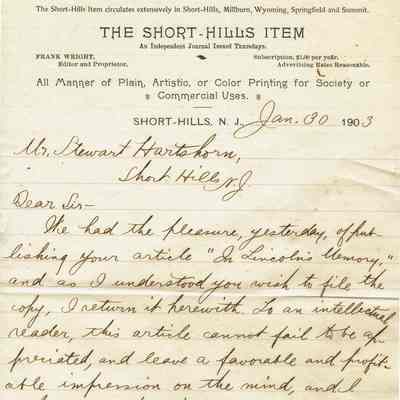 The Short-Hills Item circulates extensively in Short-Hills, Millburn, Wyoming, Springfield and Summit.
THE SHORT-HILLS ITEM
An Independent Journal Issued Thursdays.
FRANK WRIGHT, Subscription, $1.00 per year.
Editor and Proprietor. Advertising Rates Reasonable.
All Manner of Plain, Artistic, or Color Printing for Society or
Commercial Uses.
SHORT-HILLS, N. J., Jan. 30 1903
Mr. Stewart Hartshorn,
Short Hills N.J.
Dear Sir-
We had the pleasure, yesterday, of pub-
lishing your article "In Lincoln's Memory,"
and as I understood you wish to file the
copy, I return it herewith. To an intellectual
reader, this article cannot fail to be ap-
preciated, and leave a favorable and profit-
able impression on the mind, and I